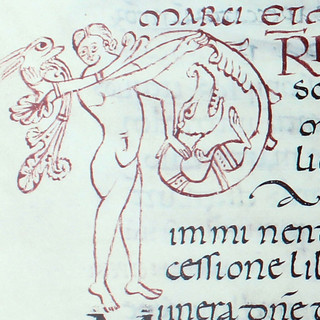 MARCI ET C
R
so
li
imminent
cessione lib
Munera dn̄e